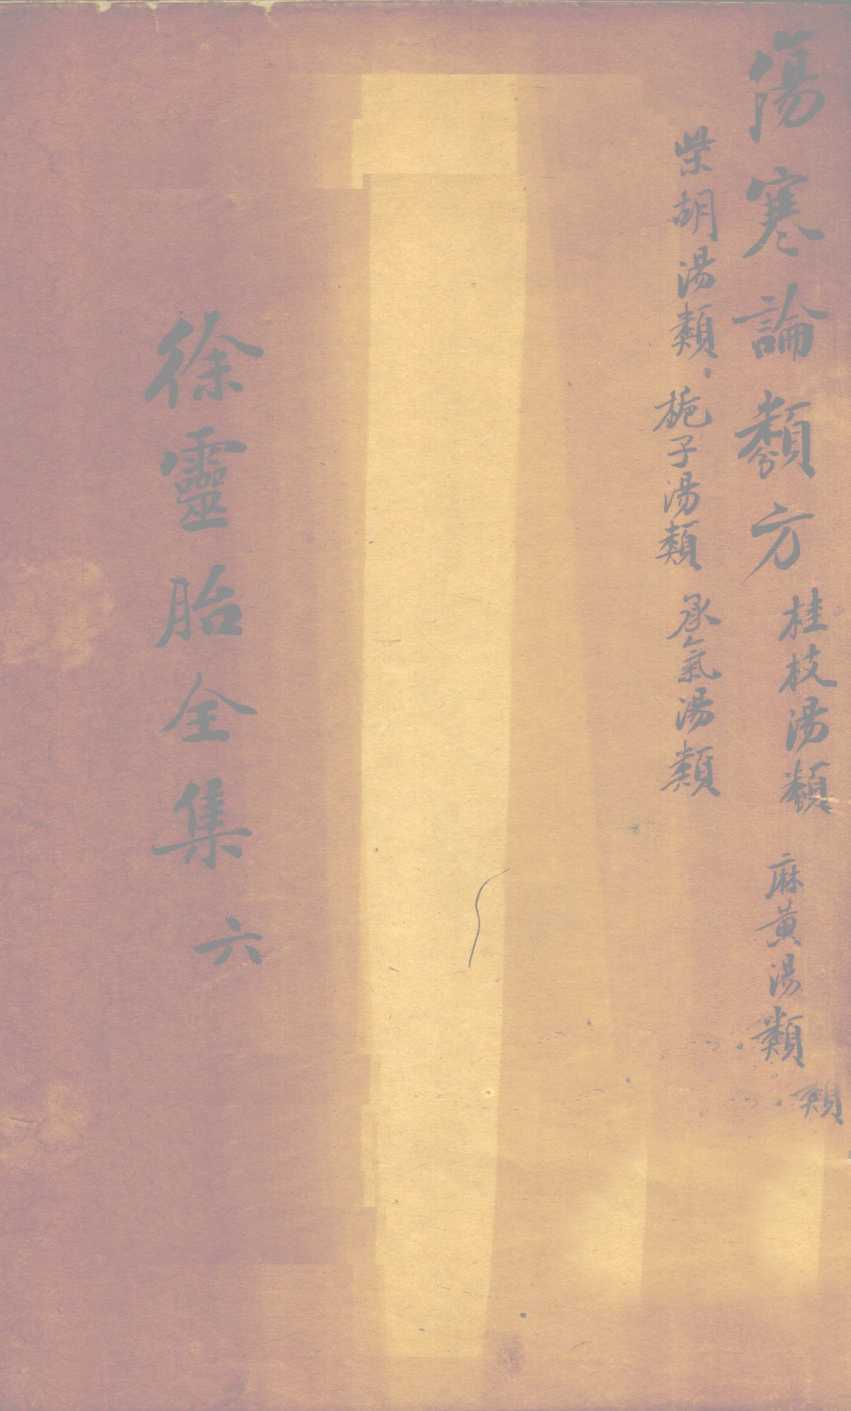 傷寒論類方
桂枝湯類 麻黃湯類
柴胡湯類、梔子湯類 承氣湯類
徐靈胎全集 六